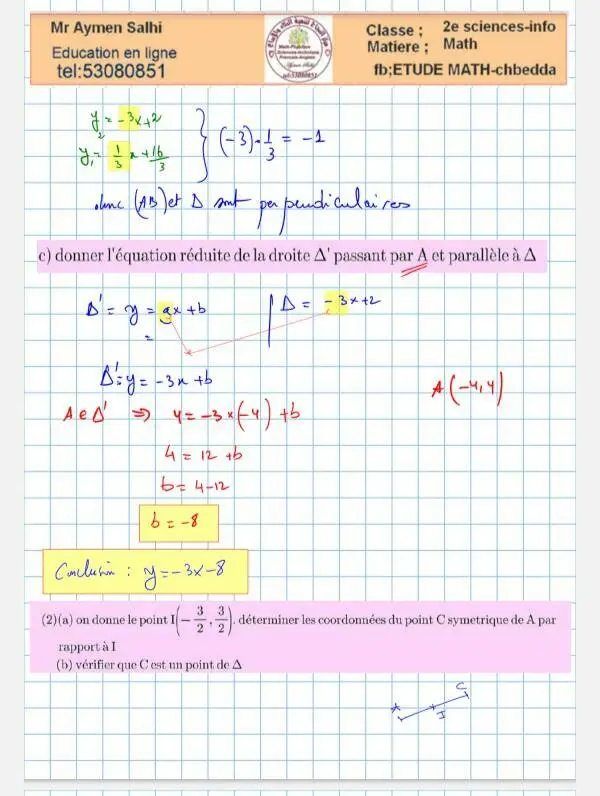 Mr Aymen Salhi
Education en ligne
tel:53080851
Classe ; 2e sciences-info
Matiere ; Math
fb;ETUDE MATH-chbedda
y₂ = -3x+2
y₁ = 1/3 x + 16/3
(-3) × 1/3 = -1
donc (AB) et Δ sont perpendiculaires
c) donner l'équation réduite de la droite Δ' passant par A et parallèle à Δ
Δ' = y = ax+b
Δ = -3x+2
=
Δ' = y = -3x+b
A(-4,4)
A∈Δ' ⇒ 4 = -3×(-4)+b
4 = 12 +b
b = 4-12
b = -8
Conclusion : y=-3x-8
(2)(a) on donne le point I(-3/2, 3/2). déterminer les coordonnées du point C symetrique de A par
rapport à I
(b) vérifier que C est un point de Δ
C
A
I